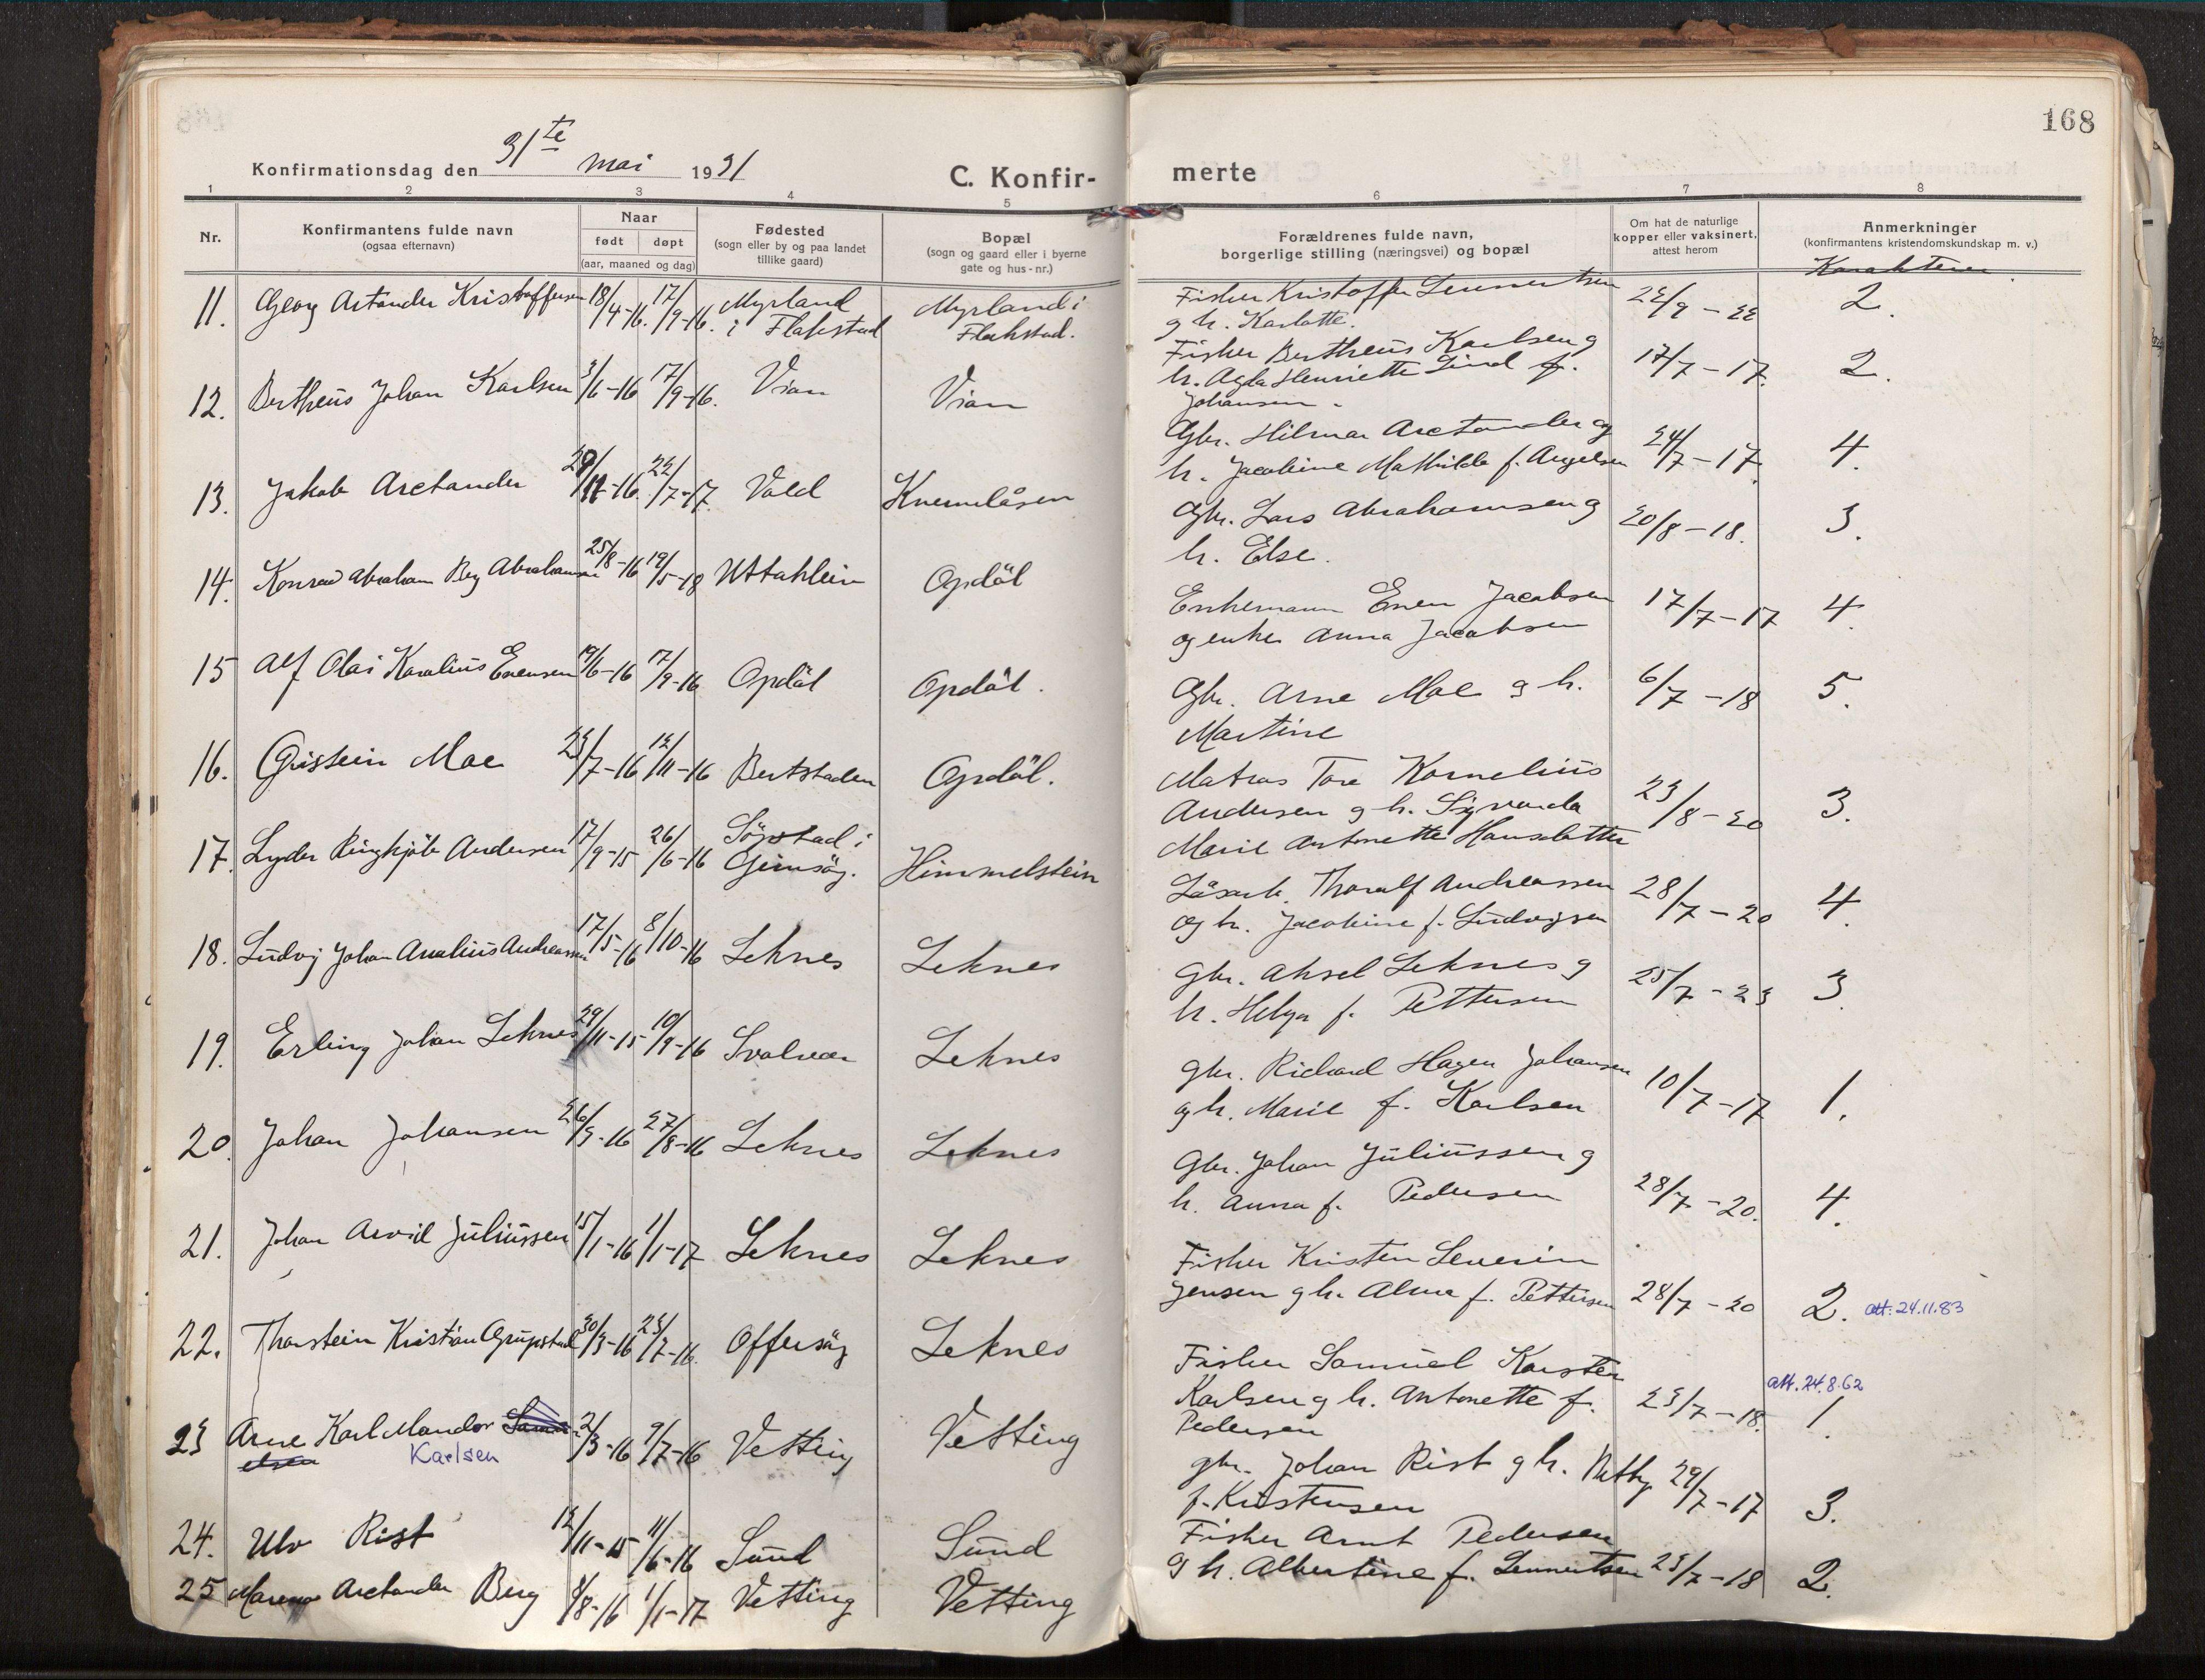 168
Konfirmationsdag den 31te mai 1931
C. Konfirmerte
1 2 3 4 5 6 7 8
Nr.
Konfirmantens fulde navn
(ogsaa efternavn)
Naar
født døpt
(aar, maaned og dag)
Fødested
(sogn eller by og paa landet
tillike gaard)
Bopæl
(sogn og gaard eller i byerne
gate og hus-nr.)
Forældrenes fulde navn,
borgerlige stilling (næringsvei) og bopæl
Om hat de naturlige
kopper eller vaksinert,
attest herom
Anmerkninger
(konfirmantens kristendomskundskap m. v.)
Karakterer
11. Georg Astander Kristoffersen 18/4-16. 17/9-16. Myrland i Flakstad Myrland i Flakstad. Fisker Kristoffer Lennertsen
g h. Karlotte. 22/9-22 2.
12. Bertheus Johan Karlsen 3/6-16 17/9-16. Vian Vian Fisker Bertheus Karlsen g
h. Agda Henriette Lind f.
Johansen. 17/7-17. 2.
13. Jakob Arctander 29/11-16. 22/7-17. Vold Knemelåsen Gbr. Hilmar Arctander og
h. Jacobine Mathilde f. Angelsen 24/7-17. 4.
14. Konrad Abraham Berg Abrahamsen 25/8-16 19/5-18 Uttakleiv Opdöl Gbr. Lars Abrahamsen g
h. Else. 20/8-18. 3.
15 Alf Olai Karolius Evensen 19/6-16 17/9-16 Opdöl Opdöl. Enkemann Even Jacobsen
og enke Anna Jacobsen 17/7-17 4.
16. Gristein Moe 23/7-16 12/11-16 Bertstaden Opdöl. Gbr. Arne Moe g h.
Martine 6/7-18 5.
17. Lyder Ringkjöb Andersen 17/9-15 26/6-16 Sörstad i Gimsöy. Himmelstein Matros Tore Kornelius
Andersen g h. Sigvarda
Marie Antonette Hansdatter 23/8-20 3.
18. Ludvig Johan Analius Andreassen 17/5-16 8/10-16 Leknes Leknes Låsarb. Thoralf Andreassen
og h. Jacobine f. Ludvigsen 28/7-20 4.
19. Erling Johan Leknes 29/11-15 10/9-16 Svolvær Leknes Gbr. Aksel Leknes g
h. Helga f. Pettersen 25/7-23 3.
20. Johan Johansen 26/3-16 27/8-16 Leknes Leknes Gbr. Richard Hagen Johansen
g h. Marie f. Karlsen 10/7-17 1.
21. Johan Arvid Juliussen 15/1-16 1/1-17 Leknes Leknes Gbr. Johan Juliussen g
h. Anna f. Pedersen 28/7-20. 4.
22. Thorstein Kristian Grupstad 30/3-16 23/7-16. Offersöy Leknes Fisker Kristen Severin
Jensen g h. Alma f. Pettersen 28/7-20 2. att. 24.11.83
23 Arne Karl Mandor Samuelsen Karlsen 2/3-16 9/7-16 Vetting Vetting Fisker Samuel Karsten
Karlsen g h. Antonette f.
Pedersen 23/7-18. 1. att. 24.8.62
24. Ulv Rist 12/11-15 11/6-16 Sund Sund gbr. Johan Rist g h. Netty
f. Kristensen 29/7-17 3.
25 Arctander Berg 8/8-16 1/1-17 Vetting Vetting Fisker Arnt Pedersen
g h. Albertine f. Lennertsen 23/7-18 2.